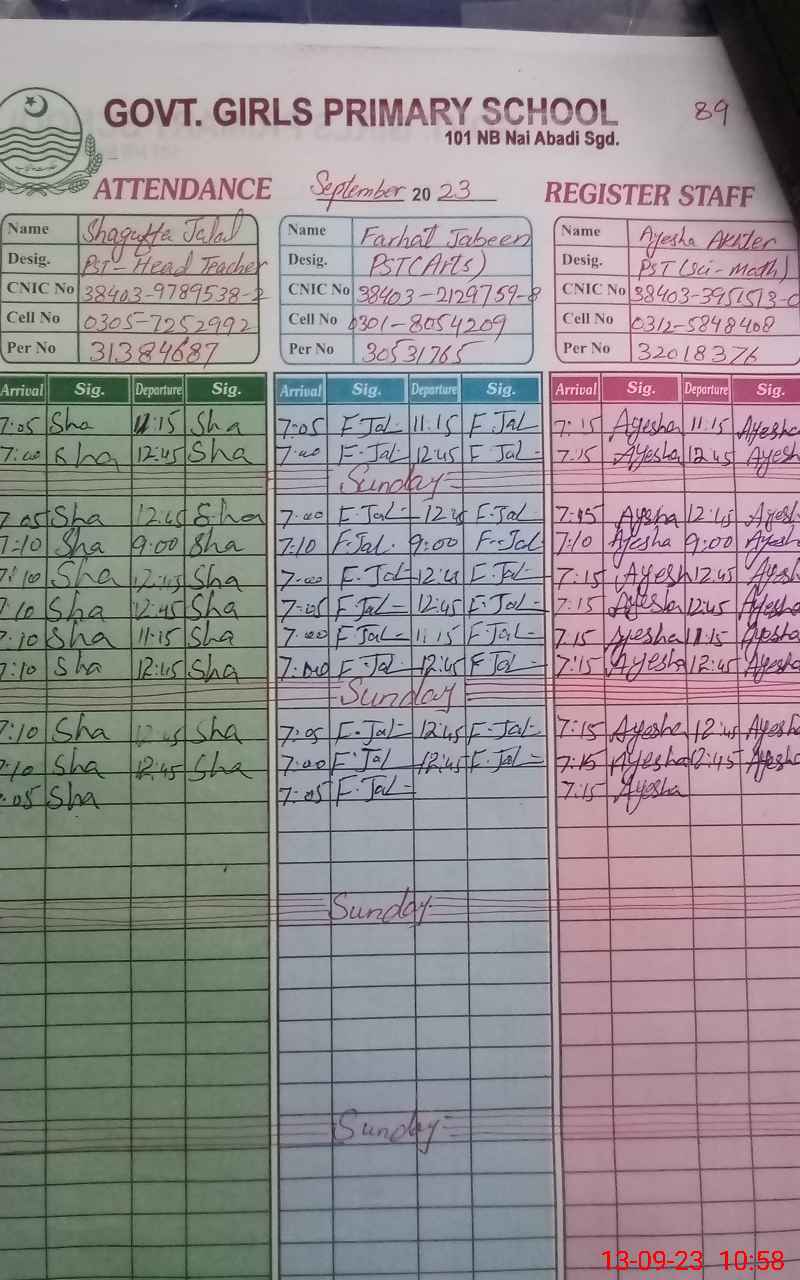 GOVT. GIRLS PRIMARY SCHOOL 89
101 NB Nai Abadi Sgd.
ATTENDANCE September 2023 REGISTER STAFF
Name Shagufta Jalal Name Farhat Jabeen Name Ayesha Akhter
Desig. PST-Head Teacher Desig. PST(Arts) Desig. PST(Sci-math)
CNIC No 38403-9789538-2 CNIC No 38403-2129759-8 CNIC No 38403-3951513-0
Cell No 0305-7252992 Cell No 0301-8054209 Cell No 0312-5848408
Per No 31384687 Per No 30531765 Per No 32018376
Arrival Sig. Departure Sig. Arrival Sig. Departure Sig. Arrival Sig. Departure Sig.
7:05 Sha 11:15 Sha 7:05 F.Jal- 11:15 F.Jal 7:15 Ayesha 11:15 Ayesha
7:00 Sha 12:45 Sha 7:00 F.Jal- 12:45 F.Jal- 7:15 Ayesha 12:45 Ayesh
Sunday-
7:05 Sha 12:45 Sha 7:00 F.Jal- 12:45 F.Jal- 7:15 Ayesha 12:45 Ayesh
7:10 Sha 9:00 Sha 7:10 F.Jal. 9:00 F.Jal 7:10 Ayesha 9:00 Ayesh
7:10 Sha 12:45 Sha 7:00 F.Jal- 12:45 F.Jal- 7:15 Ayesh 12:45 Ayesh
7:10 Sha 12:45 Sha 7:05 F.Jal- 12:45 F.Jal- 7:15 Ayesha 12:45 Ayesha
7:10 Sha 11:15 Sha 7:00 F.Jal- 11:15 F.Jal- 7:15 Ayesha 11:15 Ayesha
7:10 Sha 12:45 Sha 7:00 F.Jal- 12:45 F.Jal- 7:15 Ayesha 12:45 Ayesha
Sunday
7:10 Sha 12:45 Sha 7:05 F.Jal- 12:45 F.Jal- 7:15 Ayesha 12:45 Ayesha
7:10 Sha 12:45 Sha 7:00 F.Jal 12:45 F.Jal- 7:15 Ayesha 12:45 Ayesha
:05 Sha 7:05 F.Jal- 7:15 Ayesha
Sunday-
Sunday-
13-09-23 10:58